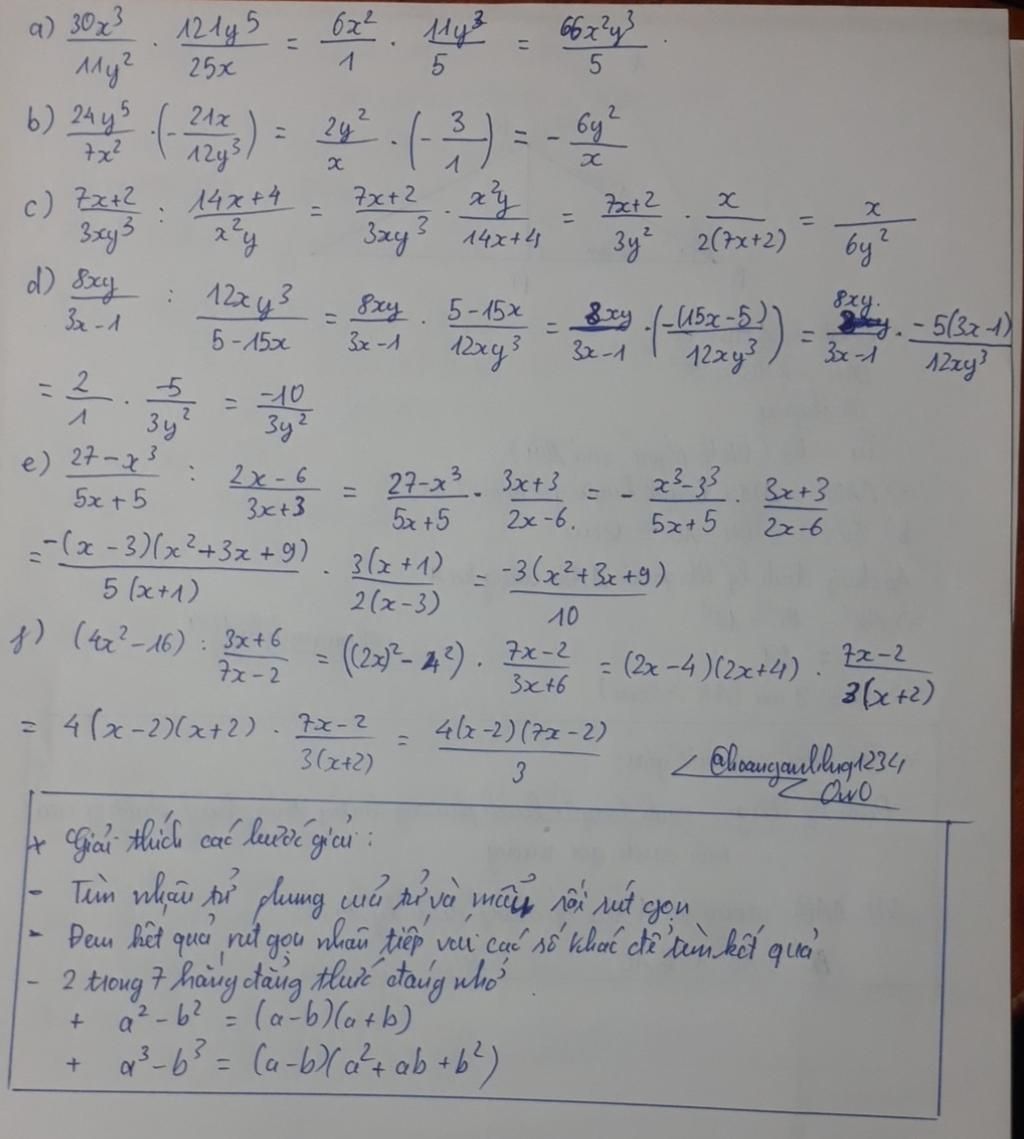 a) 30x³/11y² · 121y⁵/25x = 6x²/1 · 11y³/5 = 66x²y³/5 .
b) 24y⁵/7x² · (-21x/12y³) = 2y²/x · (-3/1) = - 6y²/x
c) 7x+2/3xy³ : 14x+4/x²y = 7x+2/3xy³ · x²y/14x+4 = 7x+2/3y² · x/2(7x+2) = x/6y²
d) 8xy/3x-1 : 12xy³/5-15x = 8xy/3x-1 · 5-15x/12xy³ = 8xy/3x-1 · (-(15x-5)/12xy³) = 8xy/3x-1 · -5(3x-1)/12xy³
= 2/1 · -5/3y² = -10/3y²
e) 27-x³/5x+5 : 2x-6/3x+3 = 27-x³/5x+5 · 3x+3/2x-6 = - x³-3³/5x+5 · 3x+3/2x-6
= -(x-3)(x²+3x+9)/5(x+1) · 3(x+1)/2(x-3) = -3(x²+3x+9)/10
f) (4x²-16) : 3x+6/7x-2 = ((2x)²-4²) · 7x-2/3x+6 = (2x-4)(2x+4) · 7x-2/3(x+2)
= 4(x-2)(x+2) · 7x-2/3(x+2) = 4(x-2)(7x-2)/3
OwO
+ Giải thích các bước giải :
- Tìm nhân tử chung của tử và mẫu rồi rút gọn
- Đem kết quả rút gọn nhân tiếp với các số khác để tìm kết quả
- 2 trong 7 hằng đẳng thức đáng nhớ
+ a²-b² = (a-b)(a+b)
+ a³-b³ = (a-b)(a²+ab+b²)